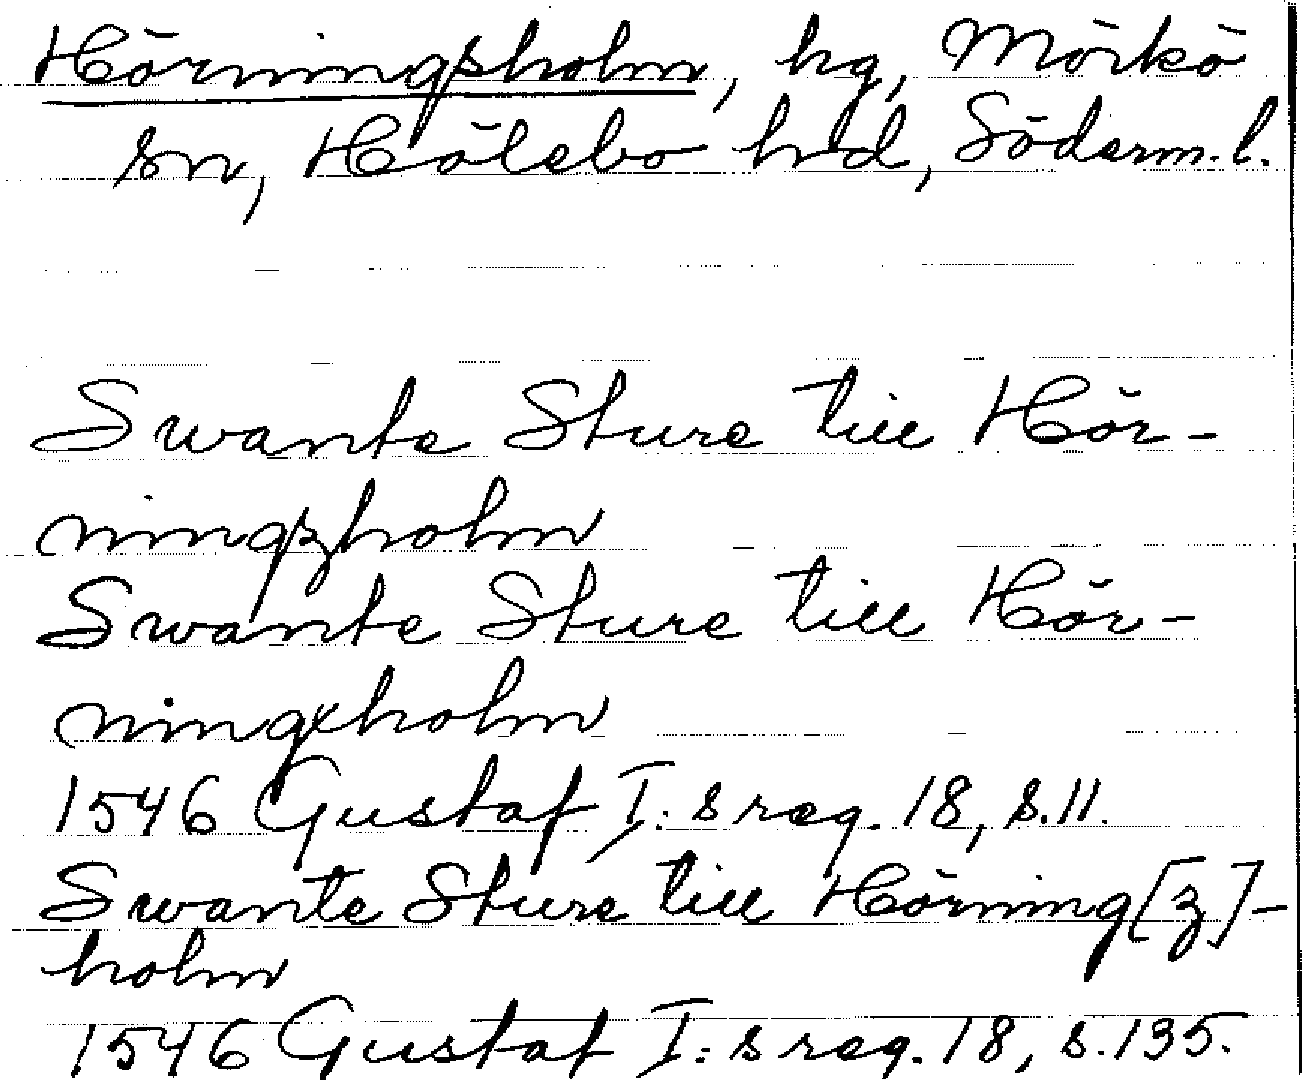 Hörningsholm, hg, Mörkö
sn, Hölebo hrd, Söderm. l.
Swante Sture till Hör-
ningzholm
Swante Sture till Hör-
ningxholm
1546 Gustaf I:s reg. 18, s. 11.
Swante Sture till Hörning[z]-
holm
1546 Gustaf I:s reg. 18, s. 135.